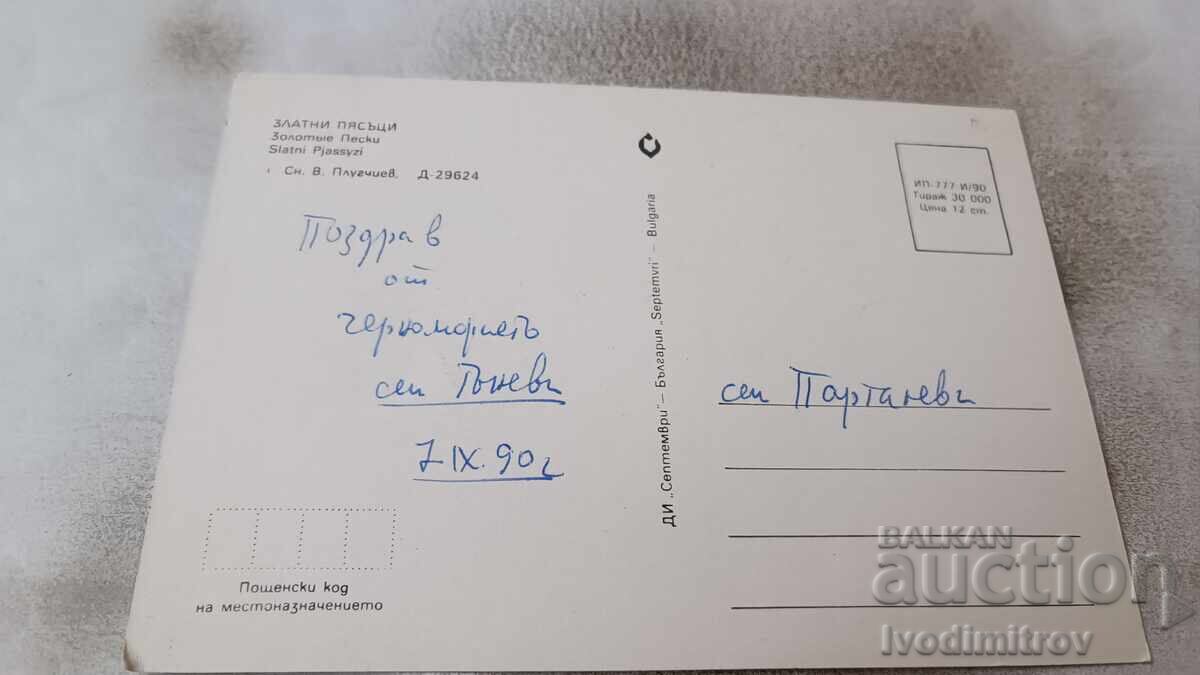 ЗЛАТНИ ПЯСЪЦИ
Золотые Пески
Slatni Pjassyzi
Сн. В. Плугчиев, Д-29624
Поздрав
от
черноморието
сем Тъневи
7 IX. 90г
Пощенски код
на местоназначението
ДИ „Септември" – България „Septemvri" – Bulgaria
ИП-777 И/90
Тираж 30 000
Цена 12 ст.
сем Партаневи
BALKAN
auction
Ivodimitrov